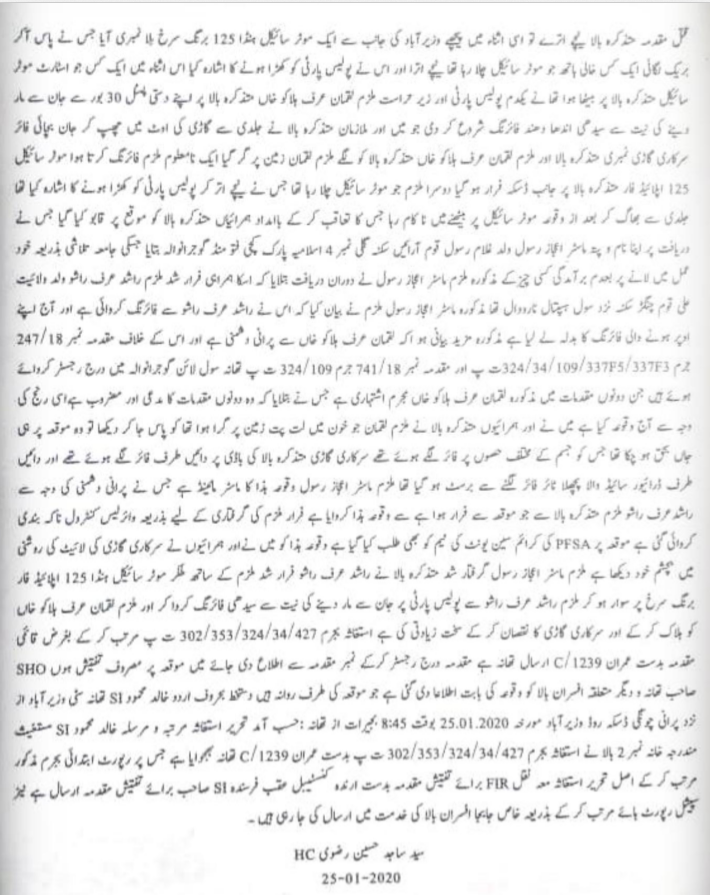 قتل مقدمہ متذکرہ بالا نیچے اترے تو اسی اثناء میں پیچھے وزیرآباد کی جانب سے ایک موٹر سائیکل ہنڈا 125 برنگ سرخ بلا نمبری آیا جس نے پاس آکر
بریک لگائی ایک کس خالی ہاتھ جو موٹر سائیکل چلا رہا تھا نیچے اترا اور اس نے پولیس پارٹی کو کھڑا ہونے کا اشارہ کیا اس اثناء میں ایک کس جو اسٹارٹ موٹر
سائیکل متذکرہ بالا پر بیٹھا ہوا تھا نے یکدم پولیس پارٹی اور زیر حراست ملزم لقمان عرف ہلاکو خاں متذکرہ بالا پر اپنے دستی پسٹل 30 بور سے جان سے مار
دینے کی نیت سے سیدھی اندھا دھند فائرنگ شروع کر دی جو میں اور ملازمان متذکرہ بالا نے جلدی سے گاڑی کی اوٹ میں چھپ کر جان بچائی فائر
سرکاری گاڑی نمبری متذکرہ بالا اور ملزم لقمان عرف ہلاکو خاں متذکرہ بالا کو لگے ملزم لقمان زمین پر گر گیا ایک نامعلوم ملزم فائرنگ کرتا ہوا موٹر سائیکل
125 اپلائیڈ فار متذکرہ بالا پر جانب ڈسکہ فرار ہو گیا دوسرا ملزم جو موٹر سائیکل چلا رہا تھا جس نے نیچے اتر کر پولیس پارٹی کو کھڑا ہونے کا اشارہ کیا تھا
جلدی سے بھاگ کر بعد از وقوعہ موٹر سائیکل پر بیٹھنے میں ناکام رہا جس کا تعاقب کر کے باامداد ہمراہیاں متذکرہ بالا کو موقع پر قابو کیا گیا جس نے
دریافت پر اپنا نام و پتہ ماسٹر اعجاز رسول ولد غلام رسول قوم آرائیں سکنہ گلی نمبر 4 اسلامیہ پارک پکی فتو منڈ گوجرانوالہ بتایا جسکی جامعہ تلاشی بذریعہ خود
عمل میں لانے پر بعدم برآمدگی کسی چیز کے مذکورہ ملزم ماسٹر اعجاز رسول نے دوران دریافت بتلایا کہ اسکا ہمراہی فرار شد ملزم راشد عرف راشو ولد ولائیت
علی قوم چنگڑ سکنہ نزد سول ہسپتال نارووال تھا مذکورہ ماسٹر اعجاز رسول ملزم نے بیان کیا کہ اس نے راشد عرف راشو سے فائرنگ کروائی ہے اور آج اپنے
اوپر ہونے والی فائرنگ کا بدلہ لے لیا ہے مذکورہ مزید بیانی ہو اکہ لقمان عرف ہلاکو خاں سے پرانی دشمنی ہے اور اس کے خلاف مقدمہ نمبر 247/18
جرم 324/34/109/337F5/337F3ت پ اور مقدمہ نمبر 741/18 جرم 324/109 ت پ تھانہ سول لائن گوجرانوالہ میں درج رجسٹر کروائے
ہوئے ہیں جن دونوں مقدمات میں مذکورہ لقمان عرف ہلاکو خاں مجرم اشتہاری ہے جس نے بتلایا کہ وہ دونوں مقدمات کا مدعی اور مضروب ہے اسی رنج کی
وجہ سے آج وقوعہ کیا ہے میں نے اور ہمراہیوں متذکرہ بالا نے ملزم لقمان جو خون میں لت پت زمین پر گرا ہوا تھا کو پاس جا کر دیکھا تو وہ موقعہ پر ہی
جاں بحق ہو چکا تھا جس کو جسم کے مختلف حصوں پر فائر لگے ہوئے تھے سرکاری گاڑی متذکرہ بالا کی باڈی پر دائیں طرف فائر لگے ہوئے تھے اور دائیں
طرف ڈرائیور سائیڈ والا پچھلا ٹائر فائر لگنے سے برسٹ ہو گیا تھا ملزم ماسٹر اعجاز رسول وقوعہ ہذا کا ماسٹر مائینڈ ہے جس نے پرانی دشمنی کی وجہ سے
راشد عرف راشو ملزم متذکرہ بالا سے جو موقعہ سے فرار ہوا ہے سے وقوعہ ہذا کروایا ہے فرار ملزم کی گرفتاری کے لیے بذریعہ وائرلیس کنٹرول ناکہ بندی
کروائی گئی ہے موقعہ پر PFSA کی کرائم سین یونٹ کی ٹیم کو بھی طلب کیا گیا ہے وقوعہ ہذا کو میں نے اور ہمراہیوں نے سرکاری گاڑی کی لائیٹ کی روشنی
میں بچشم خود دیکھا ہے ملزم ماسٹر اعجاز رسول گرفتار شد متذکرہ بالا نے راشد عرف راشو فرار شد ملزم کے ساتھ ملکر موٹر سائیکل ہنڈا 125 اپلائیڈ فار
برنگ سرخ پر سوار ہو کر ملزم راشد عرف راشو سے پولیس پارٹی پر جان سے مار دینے کی نیت سے سیدھی فائرنگ کروا کر اور ملزم لقمان عرف ہلاکو خاں
کو ہلاک کر کے اور سرکاری گاڑی کا نقصان کر کے سخت زیادتی کی ہے استغاثہ بجرم 302/353/324/34/427 ت پ مرتب کر کے بغرض قائمی
مقدمہ بدست عمران 1239/C ارسال تھانہ ہے مقدمہ درج رجسٹر کرکے نمبر مقدمہ سے اطلاع دی جائے میں موقعہ پر مصروف تفتیش ہوں SHO
صاحب تھانہ و دیگر متعلقہ افسران بالا کو وقوعہ کی بابت اطلاعا دی گئی ہے جو موقعہ کی طرف روانہ ہیں دستخط بحروف اردو خالد محمود SI تھانہ سٹی وزیرآباد از
نزد پرانی چونگی ڈسکہ روڈ وزیرآباد مورخہ 25.01.2020 بوقت 8:45 بجےرات از تھانہ :حسب آمد تحریر استغاثہ مرتبہ و مرسلہ خالد محمود SI مستغیث
مندرجہ خانہ نمبر 2 بالا نے استغاثہ بجرم 302/353/324/34/427 ت پ بدست عمران 1239/C تھانہ بھجوایا ہے جس پر رپورٹ ابتدائی بجرم مذکور
مرتب کر کے اصل تحریر استغاثہ معہ نقل FIR برائے تفتیش مقدمہ بدست ارندہ کنسٹیبل عقب فرستادہ SI صاحب برائے تفتیش مقدمہ ارسال ہے نیز
سپیشل رپورٹ ہائے مرتب کر کے بذریعہ خاص جابجا افسران بالا کی خدمت میں ارسال کی جا رہی ہیں ۔
سید ساجد حسین رضوی HC
25-01-2020